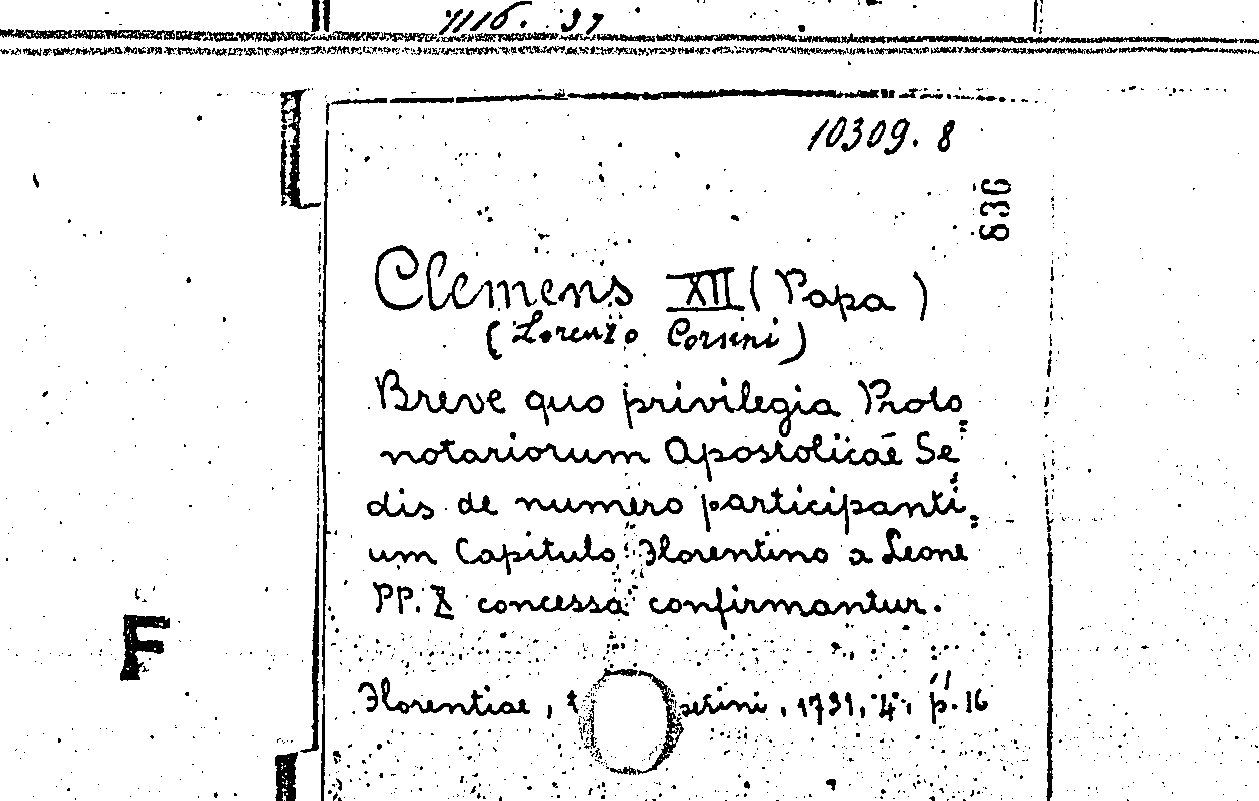 1116. 37
10309. 8
636
Clemens XII (Papa)
(Lorenzo Corsini)
Breve quo privilegia Proto
notariorum Apostolicae Se
dis de numero participanti
um Capitulo Florentino a Leone
PP. X concessa confirmantur.
F
Florentiae, 1731, 4°, p. 16